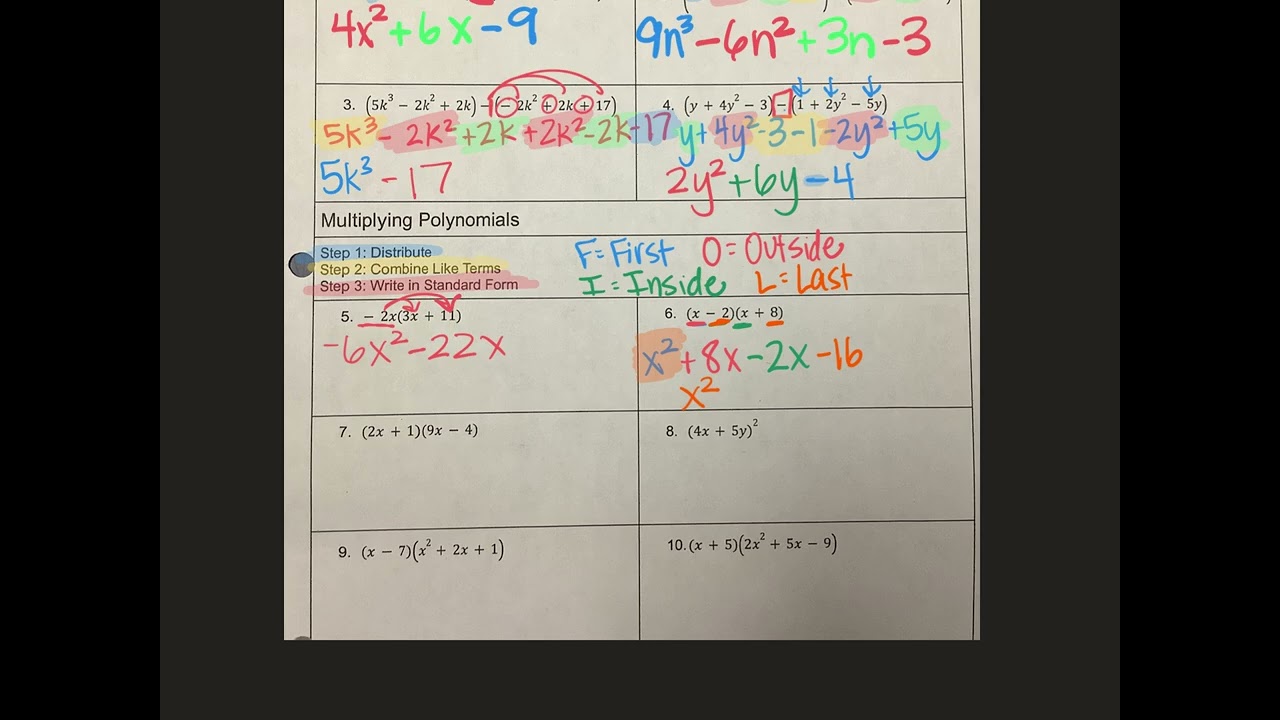 4x² + 6x - 9
9n³ - 6n² + 3n - 3
3. (5k³ − 2k² + 2k) − (− 2k² + 2k + 17)
5k³ - 2k² + 2k + 2k² - 2k - 17
5k³ - 17
4. (y + 4y² − 3) − (1 + 2y² − 5y)
y + 4y² - 3 - 1 - 2y² + 5y
2y² + 6y - 4
Multiplying Polynomials
Step 1: Distribute
Step 2: Combine Like Terms
Step 3: Write in Standard Form
F = First O = Outside
I = Inside L = Last
5. − 2x(3x + 11)
-6x² - 22x
6. (x − 2)(x + 8)
x² + 8x - 2x - 16
x²
7. (2x + 1)(9x − 4)
8. (4x + 5y)²
9. (x − 7)(x² + 2x + 1)
10. (x + 5)(2x² + 5x − 9)